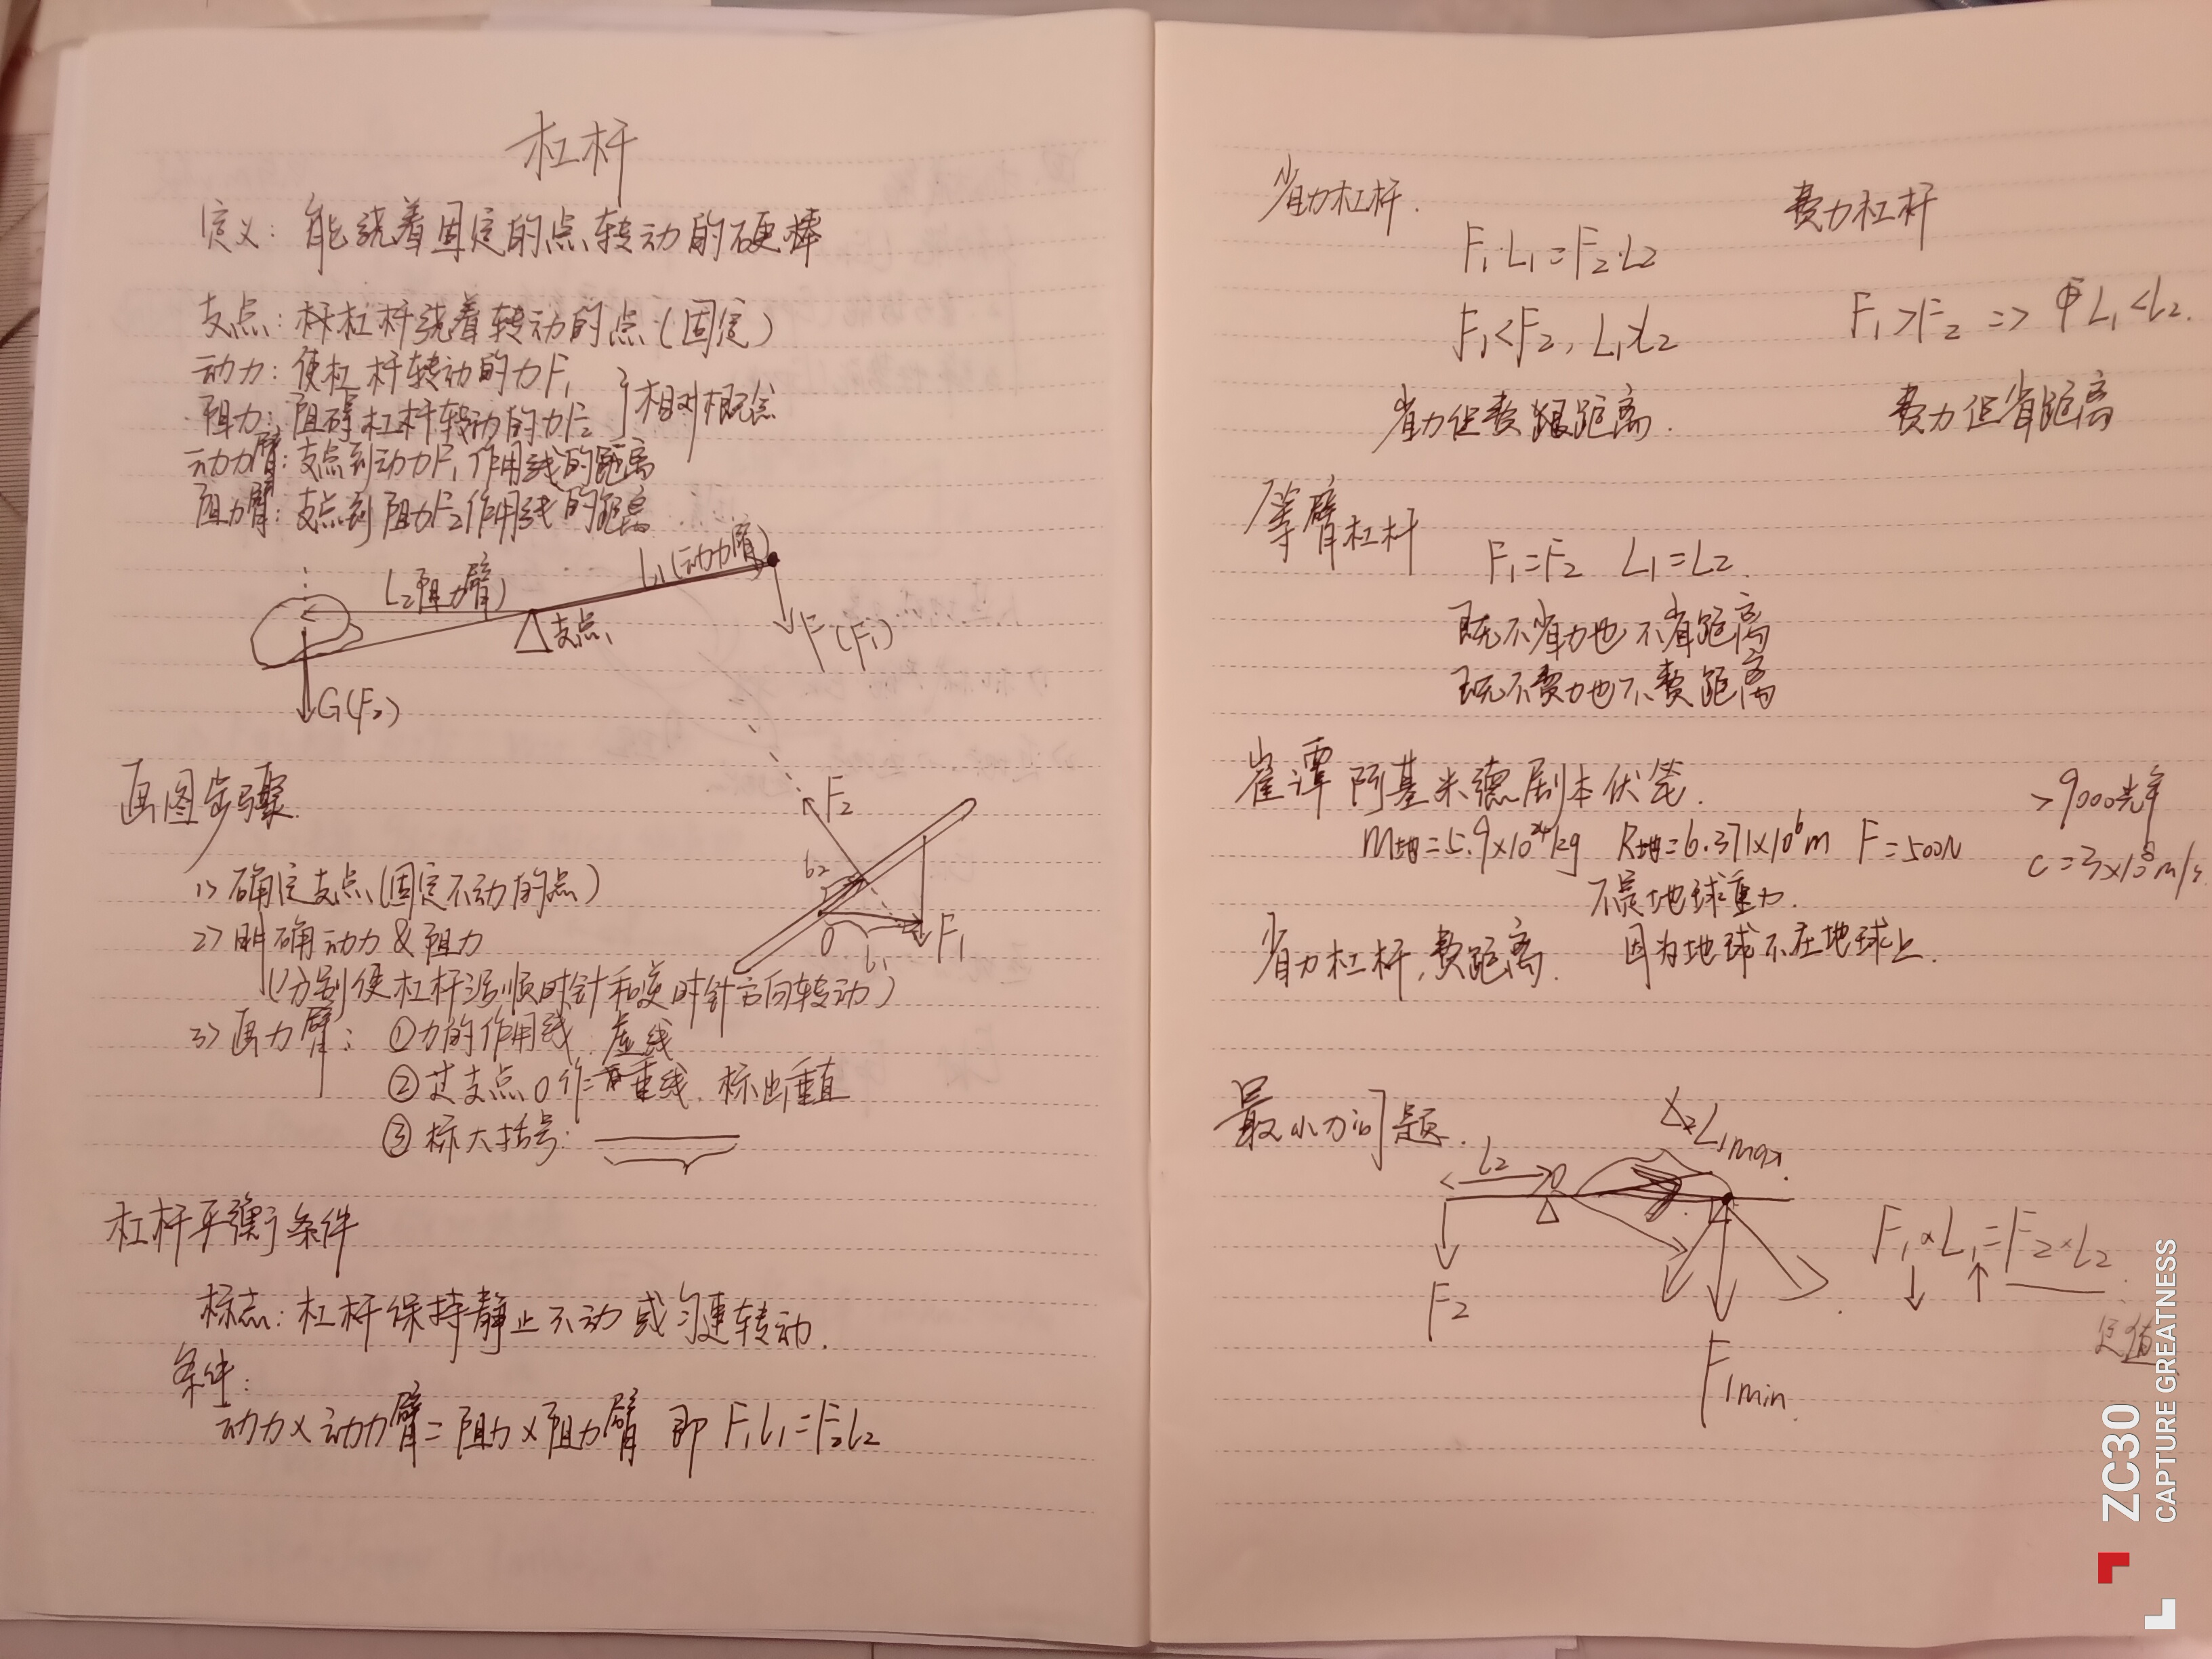 杠杆
定义: 能绕着固定的点转动的硬棒
支点: 杠杆绕着转动的点(固定)
动力: 使杠杆转动的力F₁
阻力: 阻碍杠杆转动的力F₂ }相对概念
动力臂: 支点到动力F₁作用线的距离
阻力臂: 支点到阻力F₂作用线的距离
L₂(阻力臂) L₁(动力臂)
支点 F(F₁)
G(F₂)
画图步骤
F₂
L₂
O L₁ F₁
1> 确定支点(固定不动的点)
2> 明确动力&阻力
(分别使杠杆沿顺时针和逆时针方向转动)
3> 画力臂: ①力的作用线: 虚线
②过支点O作垂线. 标出垂直
③标大括号:
杠杆平衡条件
标志: 杠杆保持静止不动或匀速转动.
条件:
动力×动力臂=阻力×阻力臂 即 F₁L₁=F₂L₂
省力杠杆. 费力杠杆
F₁·L₁=F₂·L₂
F₁<F₂, L₁>L₂ F₁>F₂ => L₁<L₂.
省力但费距离. 费力但省距离
等臂杠杆
F₁=F₂ L₁=L₂.
既不省力也不省距离
既不费力也不费距离
阿基米德剧本伏笔. >9000光年
M地=5.9×10²⁴kg R地=6.371×10⁶m F=500N c=3×10⁸m/s
不是地球重力.
省力杠杆, 费距离. 因为地球不在地球上.
最小力问题.
L₂ O L₁max.
F₂
F₁×L₁=F₂×L₂
定值
F₁min.
ZC30
CAPTURE GREATNESS